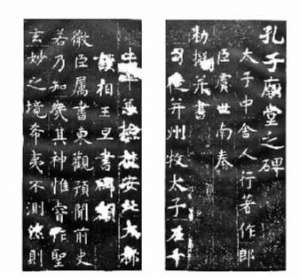 孔子廟堂之碑
太子中舍人行著作郎
臣虞世南奉
勅撰并書
司徒并州牧太子左千
檢校安北大都
護相王旦書碑額
微臣屬書東觀預聞前史
若乃知幾其神惟睿作聖
玄妙之境希夷不測然則